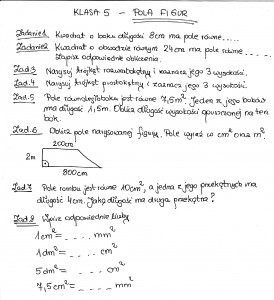 KLASA 5 - POLA FIGUR
Zadanie1. Kwadrat o boku długości 8cm ma pole równe.....
Zadanie2 Kwadrat o obwodzie równym 24cm ma pole równe .....
Zapisz odpowiednie obliczenia.
Zad.3 Narysuj trójkąt rozwartokątny i zaznacz jego 3 wysokości.
Zad.4 Narysuj trójkąt prostokątny i zaznacz jego 3 wysokości.
Zad.5 Pole równoległoboku jest równe 7,5m². Jeden z jego boków
ma długość 1,5m. Oblicz długość wysokości opuszczonej na ten
bok.
Zad.6 Oblicz pole narysowanej figury. Pole wyraź w cm² oraz m².
200cm
2m
800cm
Zad.7 Pole rombu jest równe 10cm², a jedna z jego przekątnych ma
długość 4cm. Jaką długość ma druga przekątna?
Zad.8 Wpisz odpowiednie liczby
1cm² = .... mm²
1dm² = .... cm²
5dm² = .... cm²
7,5cm² = .... mm²